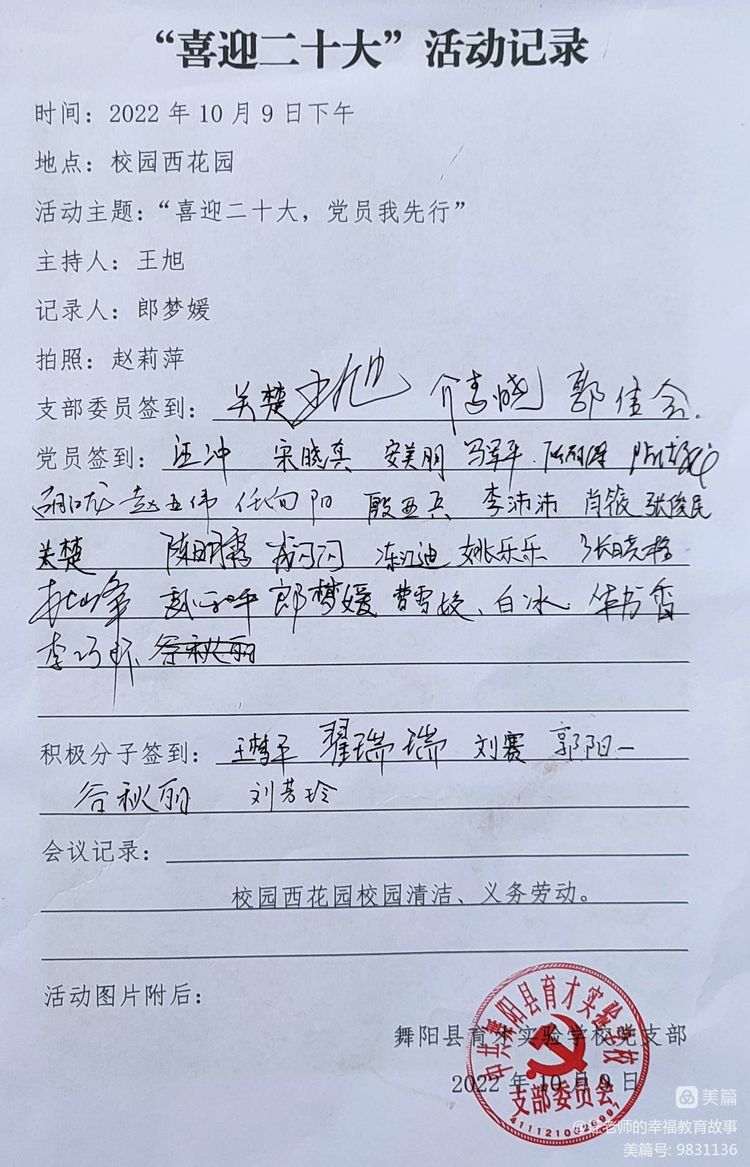 “喜迎二十大”活动记录
时间：2022 年 10 月 9 日下午
地点：校园西花园
活动主题：“喜迎二十大，党员我先行”
主持人：王旭
记录人：郎梦媛
拍照：赵莉萍
支部委员签到：关楚 王旭 介春晓 郭佳会
党员签到：汪冲 宋晓真 安美丽 冯军平
赵亚伟 任向阳 殷亚兵 李沛沛 肖筱 张俊民
关楚 陈明霞 闪闪 姚乐乐 张晓格
郎梦媛 曹雪姣、白冰
李巧 谷秋丽
积极分子签到：王梦平 翟瑞瑞 刘赛 郭阳一
谷秋丽 刘芳玲
会议记录：
校园西花园校园清洁、义务劳动。
活动图片附后：
舞阳县育才实验学校党支部
2022 年 10 月 9 日
中共舞阳县育才实验学校
支部委员会
美篇
老师的幸福教育故事
美篇号: 9831136